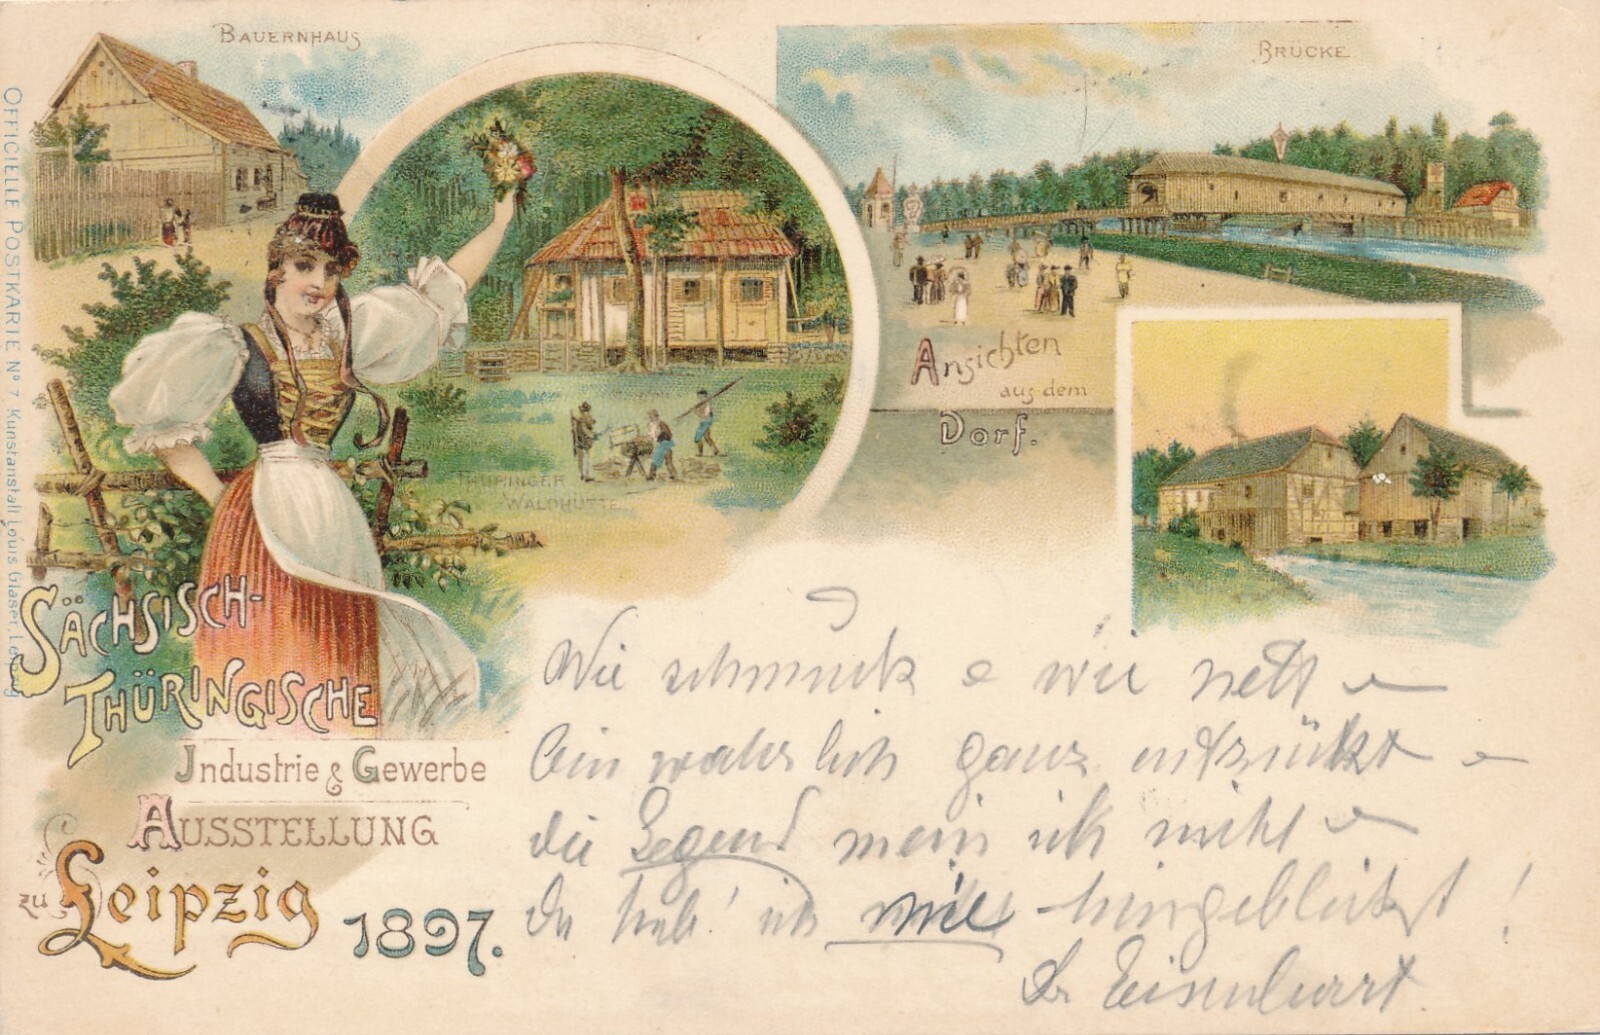 BAUERNHAUS
BRÜCKE
OFFICIELLE POSTKARTE Nº 7 Kunstanstalt Louis Glaser, Leipzig
THÜRINGER
WALDHÜTTE
Ansichten
aus dem
Dorf.
SÄCHSISCH-
THÜRINGISCHE
Industrie & Gewerbe
AUSSTELLUNG
zu Leipzig
1897.
Wie schmuck e wie nett e
bin wahrlich ganz entzückt e
die Gegend mein ich nicht e
da hab' ich viel hingeblickt!
Dr Eisenbart